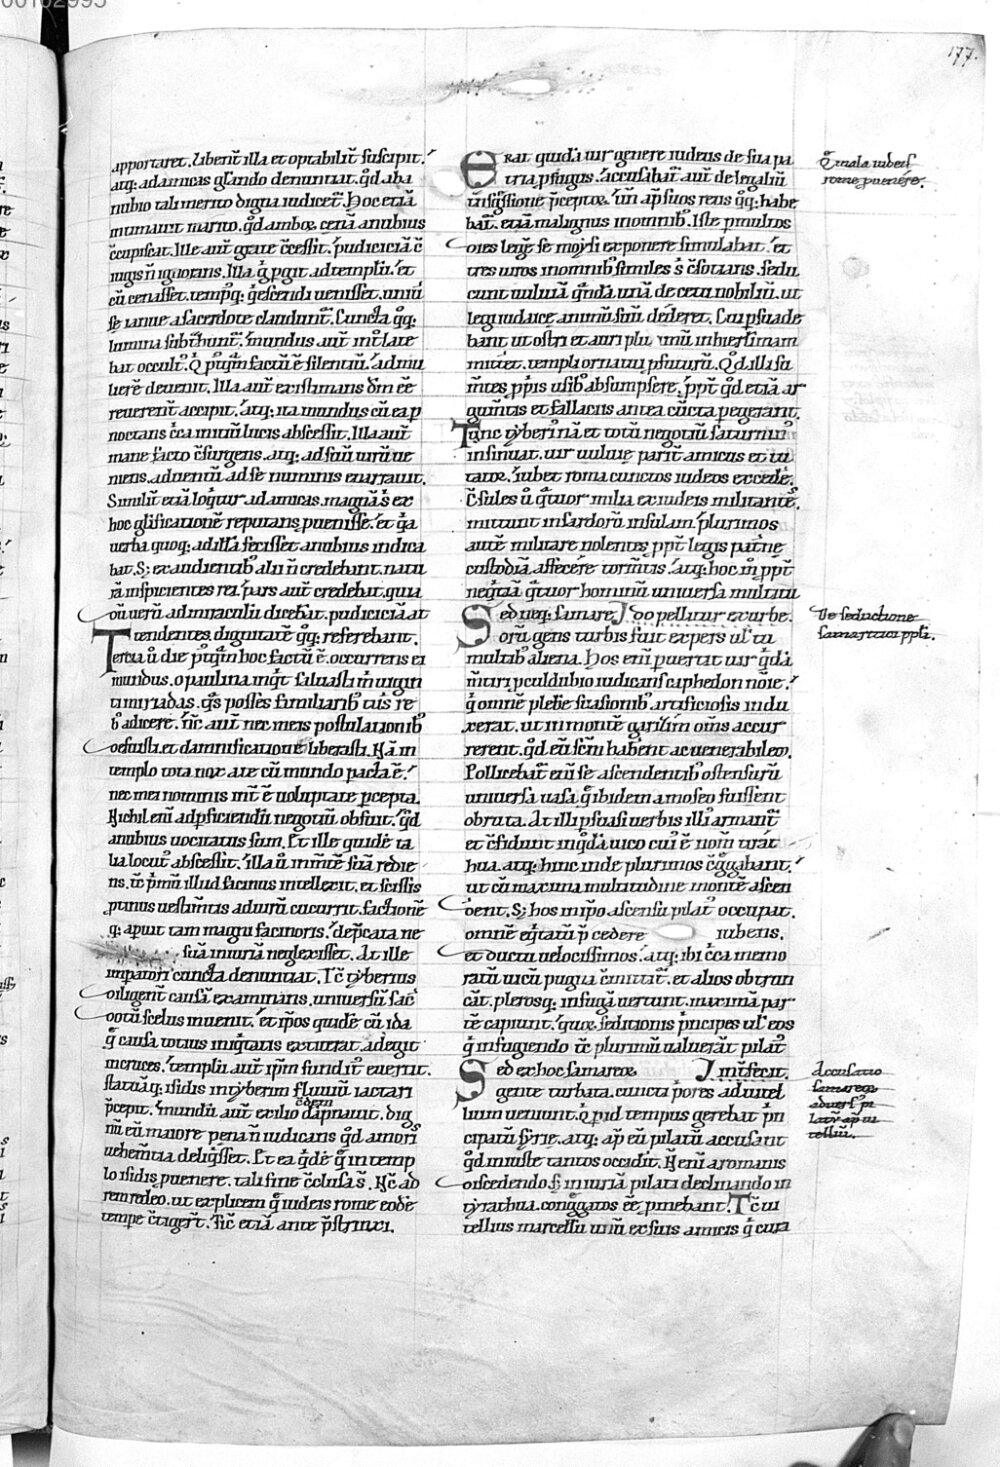 177.
apportaret. libent̄ illa et optabilit̄ suscipit.
atq; ad amicas gl̄ando denuntiat. qd̄ aba
nubio tali merito digna iudicet̄. Hoc etiā
intimaut marito. qd̄ ambos cenā anubius
c̄cupiscat. Ille aut̄ grate c̄cessit. pudiciciā c̄
iugis n̄ ignorans. Illa g̊ pgit ad templū. et
cū cenasset. tempq; q̄escendi uenisset. uniū
se ianue a sacerdote claudunt̄. Cuncta q̄q;
lumina subt̄hunt̄. mundus aut̄ int̄ latē
bat occult᷒. Q̄ p̄tq̄m factū ē silentiū. ad mu
lierē deuenit. Illa aut̄ existimans dm̄ ēē
reuerent̄ accipit. atq; ita mundus cū ea p
noctans c̄ca initiū lucis abscessit. Illa aut̄
mane facto c̄surgens. atq; ad suū uirū ue
niens. aduentū ad se numinis enarrauit.
Similit̄ etiā loq̄tur ad amicas. magnā s ex
hoc gl̄ificationē reputans puenisse. et q̄a
uerba quoq; ad illā fecisset anubius indica
bat. S; ex audientib᷒ alii n̄ credebant. natu
rā inspicientes rei. pars aut̄ credebat. quia
oū uerū ad miraculū dicebat. pudiciciā at
tuendentes. dignitatē q̄q; referebant.
Tertia ū die p᷒tq̄m hoc factū ē. occurrens ei
mundus. o paulina inq̄t saluasti m̄ uigin
ti miriadas. q̄s posses familiarib᷒ tuis re
b᷒ adicere. n̄c aut̄ nec meis postulationib᷒
oefuisti. et damnificatione liberasti. N̄a in
templo tota nox a te cū mundo pacta ē.
nec mei nominis int̄ ē uoluptate pcepta.
Nichil eni ad pficiendū negotiū obfuit. q̄d
anubius uocitatus sum. Et ille quidē ta
lia locut᷒ abscessit. illa ū in mt̄e suā redie
ns. tc̄ p̄mū illud facinus intellexit. et scissis
ptinus uestim̄tis ad uirū cucurrit. factionē
q; apuit tam magni facinoris. dep̄cata ne
suā iniuriā neglexisset. At ille
impatori cuncta denuntiat. Tc̄ tyberius
oiligent̄ causā examinans. uniuersū sac̄
ootū scelus inuenit. et ip̄os quidē cū ida
q̄ causa totius iniq̄tatis extiterat adegit
in cruces. templū aut̄ ip̄m fundit᷒ euertit.
statuāq; isidis in tyberim fluuiū iactari
p̄cepit. mundū aut̄ exilio cōdēpnauit. dig
nū eū maiore pena n̄ iudicans q̄d amoris
uehem̄tia deliq̄sset. Et ea q̄dē q̄ in temp
lo isidis puenere. tali fine c̄clusa s. N̄c ad
rem redeo. ut explicem q̄ iudeis rome eodē
tempe c̄tigert̄. Sic̄ etiā ante p̄strinxi.
Erat quidā uir genere iudeus de sua pa
tria pfugus. Accusabat̄ aut̄ de legaliū
t̄nsḡssione p̄ceptoꝝ. ūn ap̄ suos reus q̄q; habe
bat̄. etiā malignus in omnib᷒. Iste p multos
oies legē se moysi exponere simulabat. et
tres uiros in omnib᷒ similes s c̄sotians. sedu
cunt uuluiā q̄ndā unā de cetu nobiliū. ut
legi iudaice animū suū dederet. Cui psuade
bant ut ostri et auri plurimū in hierl̄imam
mitt̄et. templi ornatu pfuturū. Q̄d illi su
m̄tes. ppiis usib᷒ absumpsere. ppt̄ qd̄ etiā ar
gum̄tis et fallaciis antea cūcta pegerant.
Tunc tyberi nā et totū negotiū saturnin᷒
insinuat. uir uuluie parit̄ amicus et tu
tator. iubet roma cunctos iudeos excedē.
C̄sules ū q̄tuor milia ex iudeis militantes.
mittunt in sardorū insulam. plurimos
autē militare nolentes ppt̄ legis patrie
custodiā. affecere torm̄tis. atq; hoc m̊ ppt̄
neq̄tiā q̄tuor hominū uniuersa multitu
do pellitur ex urbe.
Sed neq; samare
orū gens turbis fuit expers ul᷒ tu
multib᷒ aliena. Hos eni puertit uir q̄dā
m̄tiri p culdubio iudicans caphedon noīe.
q̄ omnē plebē suasionib᷒ artificiosis indu
xerat. ut in monte garisim om̄s accur
rerent. qd̄ eū scm̄ habent ac uenerabileoꝝ.
Pollicebat̄ eni se ascendentib᷒ ostensurū
uniuersa uasa q̄ ibidem a moseo fuissent
obruta. At illi psuasi uerbis illi᷒ armant̄
et c̄fidunt in q̄dā uico cui ē nom̄ tirat
hua. atq; hinc inde plurimos c̄ḡgabant.
ut cū maxima multitudine monte ascen
oent. S; hos in ip̄o ascensu pilat᷒ occupat.
omnē eq̄tatū p̄cedere iubens.
et ductu uelocissimos. atq; ibi c̄ca memo
ratū uicū pugna c̄mittit̄. et alios obtrun
cāt. plerosq; in fugā uertunt. maximā par
tē capiunt. quoꝝ seditionis p̄ncipes uel eos
q̄ in fugiendo tc̄ plurimū ualuerāt pilat᷒
int̄fecit.
Sed ex hoc samareoꝝ
gente turbata. cuncti p̄ores ad uitel
lium ueniunt. q̄ p id tempus gerebat p̄n
cipatū syrie. atq; ap̄ eū pilatū accusant
qd̄ iniuste tantos occidit. N̄ eni a romanis
oiscedendo. s; iniuriā pilati declinando in
tyrathua. congḡatos ēē p̄hibebant. Tc̄ ui
tellius marcellū unū ex suis amicis q̄ cura
Q̄ mala iudeis
rome puenere.
De seductione
samaritici pp̄li.
Accusatio
samareoꝝ
aduersꝰ pi
latū ap̄ ui
telliū.